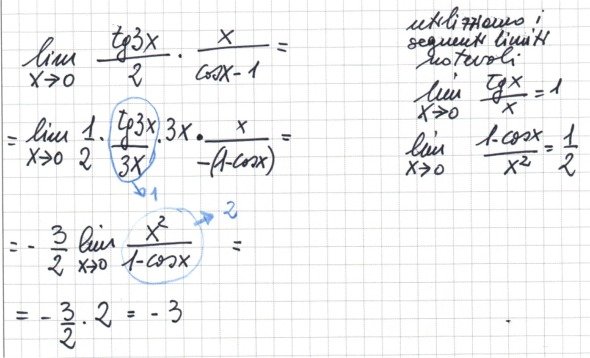 lim x→0 tg3x/2 · x/(cosx-1) =
= lim x→0 1/2 · tg3x/3x · 3x · x/-(1-cosx) =
→1
= - 3/2 lim x→0 x²/(1-cosx) =
→ 2
= - 3/2 · 2 = - 3
utilizziamo i
seguenti limiti
notevoli
lim x→0 tgx/x = 1
lim x→0 (1-cosx)/x² = 1/2